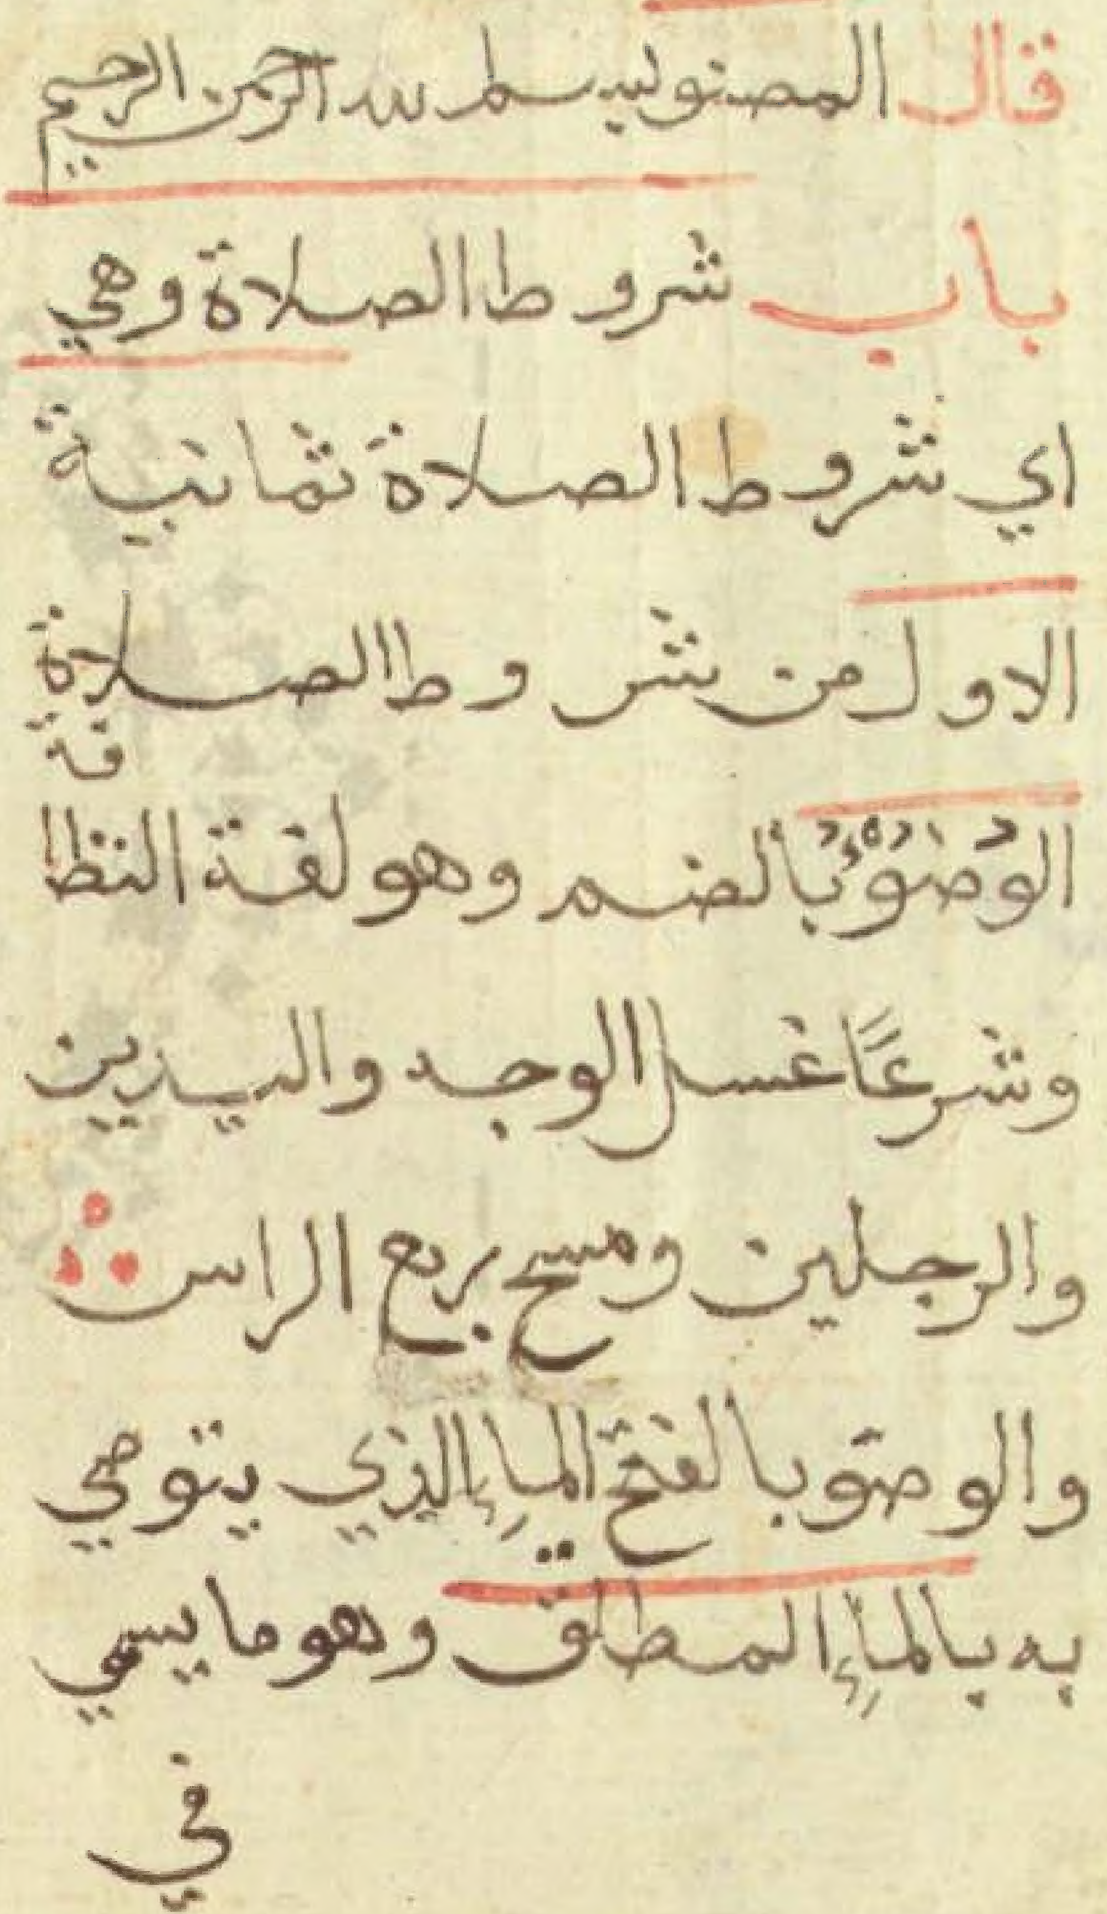 قال المصنو بسم لله الرحمن الرحيم
باب شروط الصلاة وهي
اي شروط الصلاة ثمانية
الاول من شروط الصلاة
الوُضوُءُ بالضم وهو لغة النظا
فة
وشرعًا غسل الوجه واليدين
والرجلين ومسح ربع الراس
والوضو بالفتح الماءِ الذي يتوضي
به بالماءِ المطلق وهو ما يسمي
في